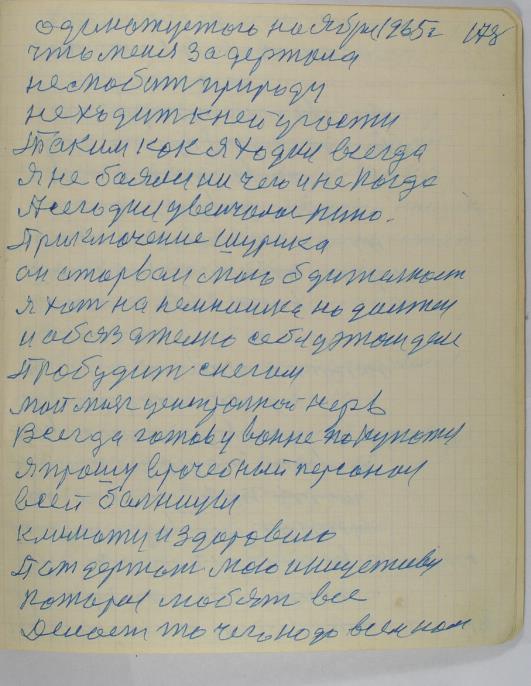 одинатцетого ноября 1965г 178
что меня задержола
несмобат природу
не ходит к ней угости
Таким как я ходил всегда
Я не боялси ни чего и не когда
А сегодня увенчалос кино.
Приключение Шурика
он оторвал мою бдителност
я хотя на немношка но должен
и обязателно себя у этом деле
Пробудит снегом
мой мияг центролной нерв
Всегда готов у ванне покупатя
Я прошу врочебный персонал
всей болници
климату и здоровию
Патдержат мою иницетиву
котороя любят все
Делает то чего надо всем нам